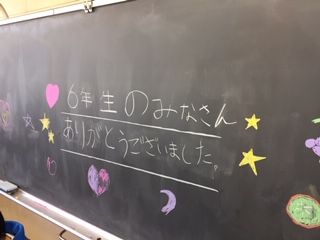 6年生のみなさん
ありがとうございました。